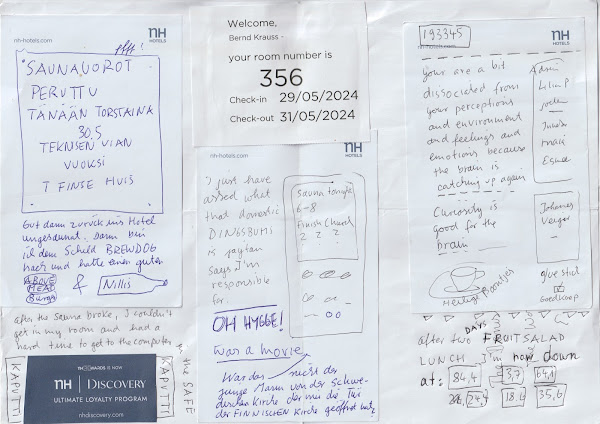 nh-hotels.com
NH
HOTELS
SAUNAVOROT
PERUTTU
TÄNÄÄN TORSTAINA
30.5
TEKNISEN VIAN
VUOKSI
T FINSE HUIS
Gut dann zurück ins Hotel
ungesaunat. Dann bin
ich dem Schild BREWDOG
nach und hatte einen guten
ABOVE
MEAD
Burger
&
Nillis
after the sauna broke, I couldn't
get in my room and had a
hard time to get to the computer
in the SAFE
KAPUTT!
KAPUTT!
REWARDS IS NOW
NH | DISCOVERY
ULTIMATE LOYALTY PROGRAM
nhdiscovery.com
Welcome,
Bernd Krauss -
your room number is
356
Check-in 29/05/2024
Check-out 31/05/2024
nh-hotels.com
NH
HOTELS
I just have
asked what
that domestic
DINGSBUMS
is
says I'm
responsible
for.
Sauna tonight
6-8
Finish Church
2 2 2
OH HYGGE!
was a movie
War das nicht der
junge Mann von der Schwe-
dischen Kirche der mir die Tür
der FINNISCHEN Kirche geöffnet hat?
193345
nh-hotels.com
NH
HOTELS
your are a bit
dissociated from
your perceptions
and environment
and feelings and
emotions because
the brain is
catching up again
Curiosity is
good for the
brain
Johannes
glue stick
Goedkoop
after two DAYS FRUITSALAD
LUNCH I'm now down
at: 84,4 3,7 64,1
24,4 18,6 35,6